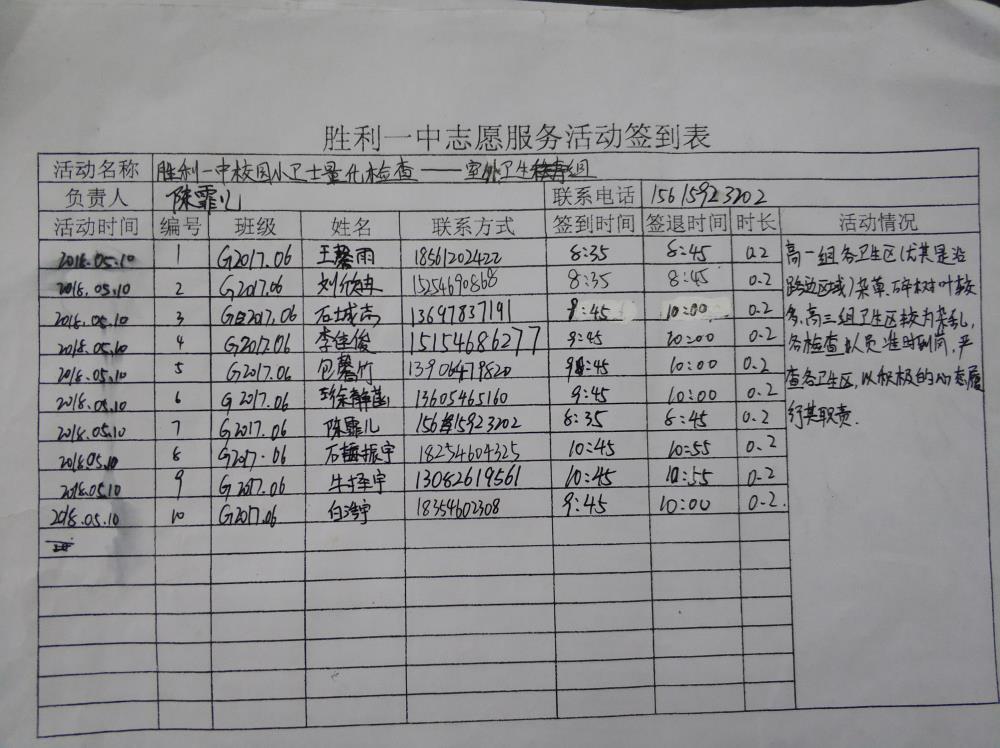 胜利一中志愿服务活动签到表
活动名称 胜利一中校园小卫士量化检查——室外卫生组
负责人 陈霏儿 联系电话 15615923202
活动时间 编号 班级 姓名 联系方式 签到时间 签退时间 时长 活动情况
2018.05.10 1 G2017.06 王馨雨 18561202422 8:35 8:45 0.2
2018.05.10 2 G2017.06 刘欣冉 15254690868 8:35 8:45 0.2
2018.05.10 3 G2017.06 石城 13697837191 9:45 10:00 0.2
2018.05.10 4 G2017.06 李佳俊 15154686277 9:45 10:00 0.2
2018.05.10 5 G2017.06 包馨竹 13906479820 9:45 10:00 0.2
2018.05.10 6 G2017.06 徐静菡 13605465160 9:45 10:00 0.2
2018.05.10 7 G2017.06 陈霏儿 15615923202 8:35 8:45 0.2
2018.05.10 8 G2017.06 石振宇 18254604325 10:45 10:55 0.2
2018.05.10 9 G2017.06 牛择宇 13082619561 10:45 10:55 0.2
2018.05.10 10 G2017.06 白浩宇 18354602308 9:45 10:00 0.2.
高一组各卫生区(尤其是沿
路边区域)杂草、碎树叶较
多,高三组卫生区较为杂乱,
各检查队员准时到岗,严
查各卫生区,以积极的心态履
行其职责.